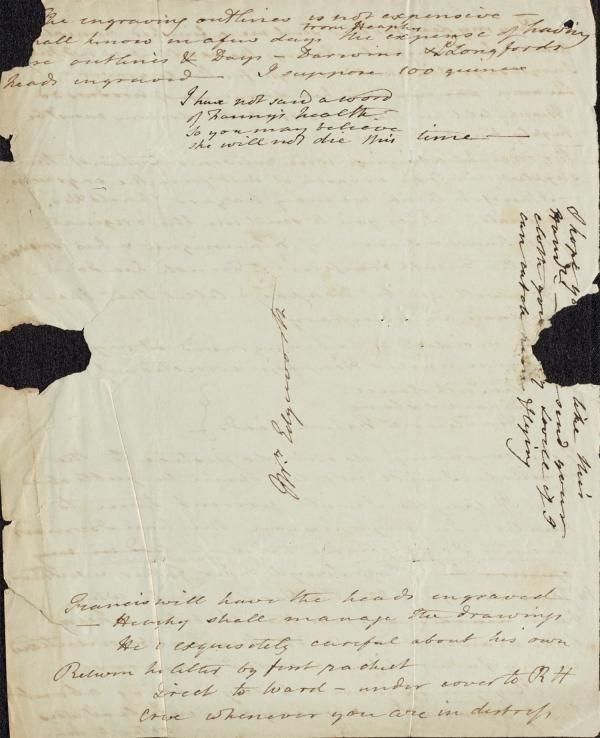 The engraving outlines is not expensive –
shall know in a few days from Heaphy the expense of having
outlines & Days – Darwins & Ld Longfords
heads engraved – I suppose 100 guineas
I have not said a word
of Fanny's health –
So you may believe
she will not die this time –
I hope you like this
send your
cloth you
can catch him flying
Mrs Edgeworth
Francis will have the heads engraved
– Heaphy shall manage the drawings
He is exquisitely careful about his own
Return his letter by first packet
Direct to Ward – under cover to R H
Crie whenever you are in distress